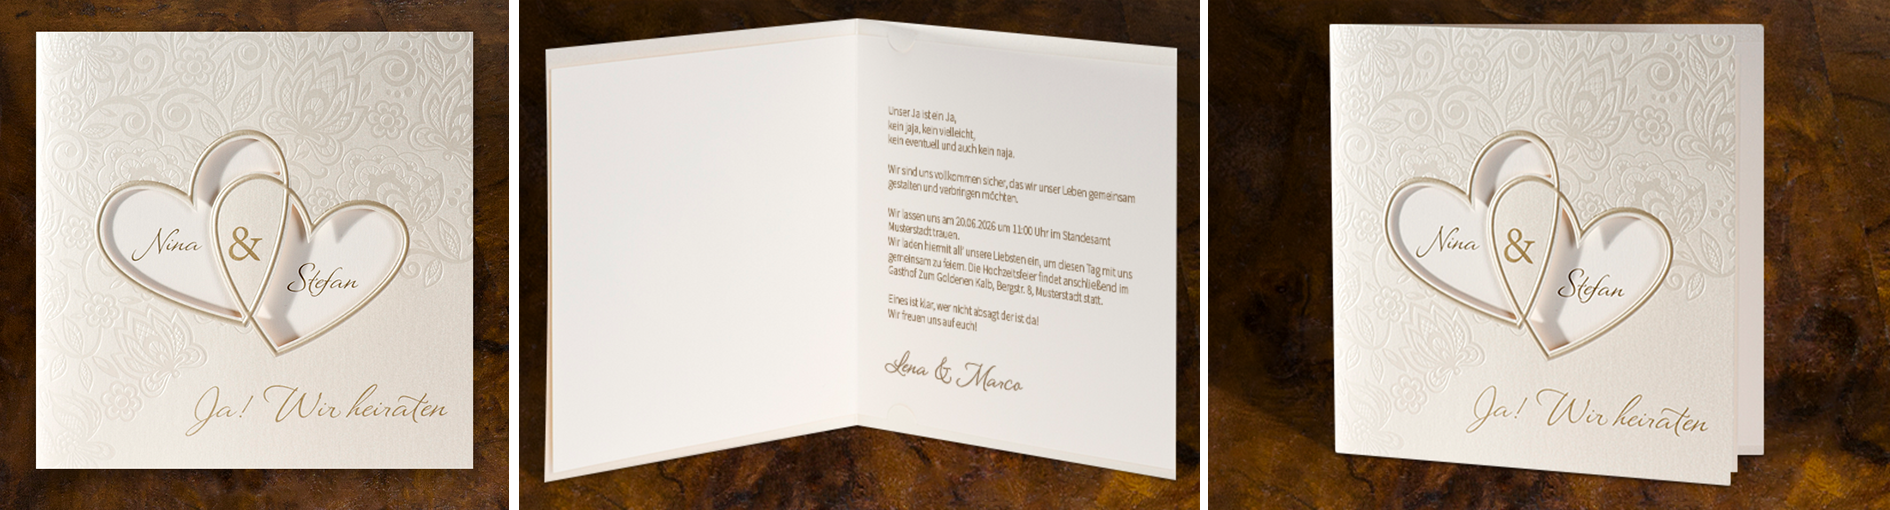 Nina
&
Stefan
Ja! Wir heiraten
Unser Ja ist ein Ja,
kein jaja, kein vielleicht,
kein eventuell und auch kein naja.
Wir sind uns vollkommen sicher, das wir unser Leben gemeinsam
gestalten und verbringen möchten.
Wir lassen uns am 20.06.2026 um 11:00 Uhr im Standesamt
Musterstadt trauen.
Wir laden hiermit all' unsere Liebsten ein, um diesen Tag mit uns
gemeinsam zu feiern. Die Hochzeitsfeier findet anschließend im
Gasthof Zum Goldenen Kalb, Bergstr. 8, Musterstadt statt.
Eines ist klar, wer nicht absagt der ist da!
Wir freuen uns auf euch!
Lena & Marco
Nina
&
Stefan
Ja! Wir heiraten